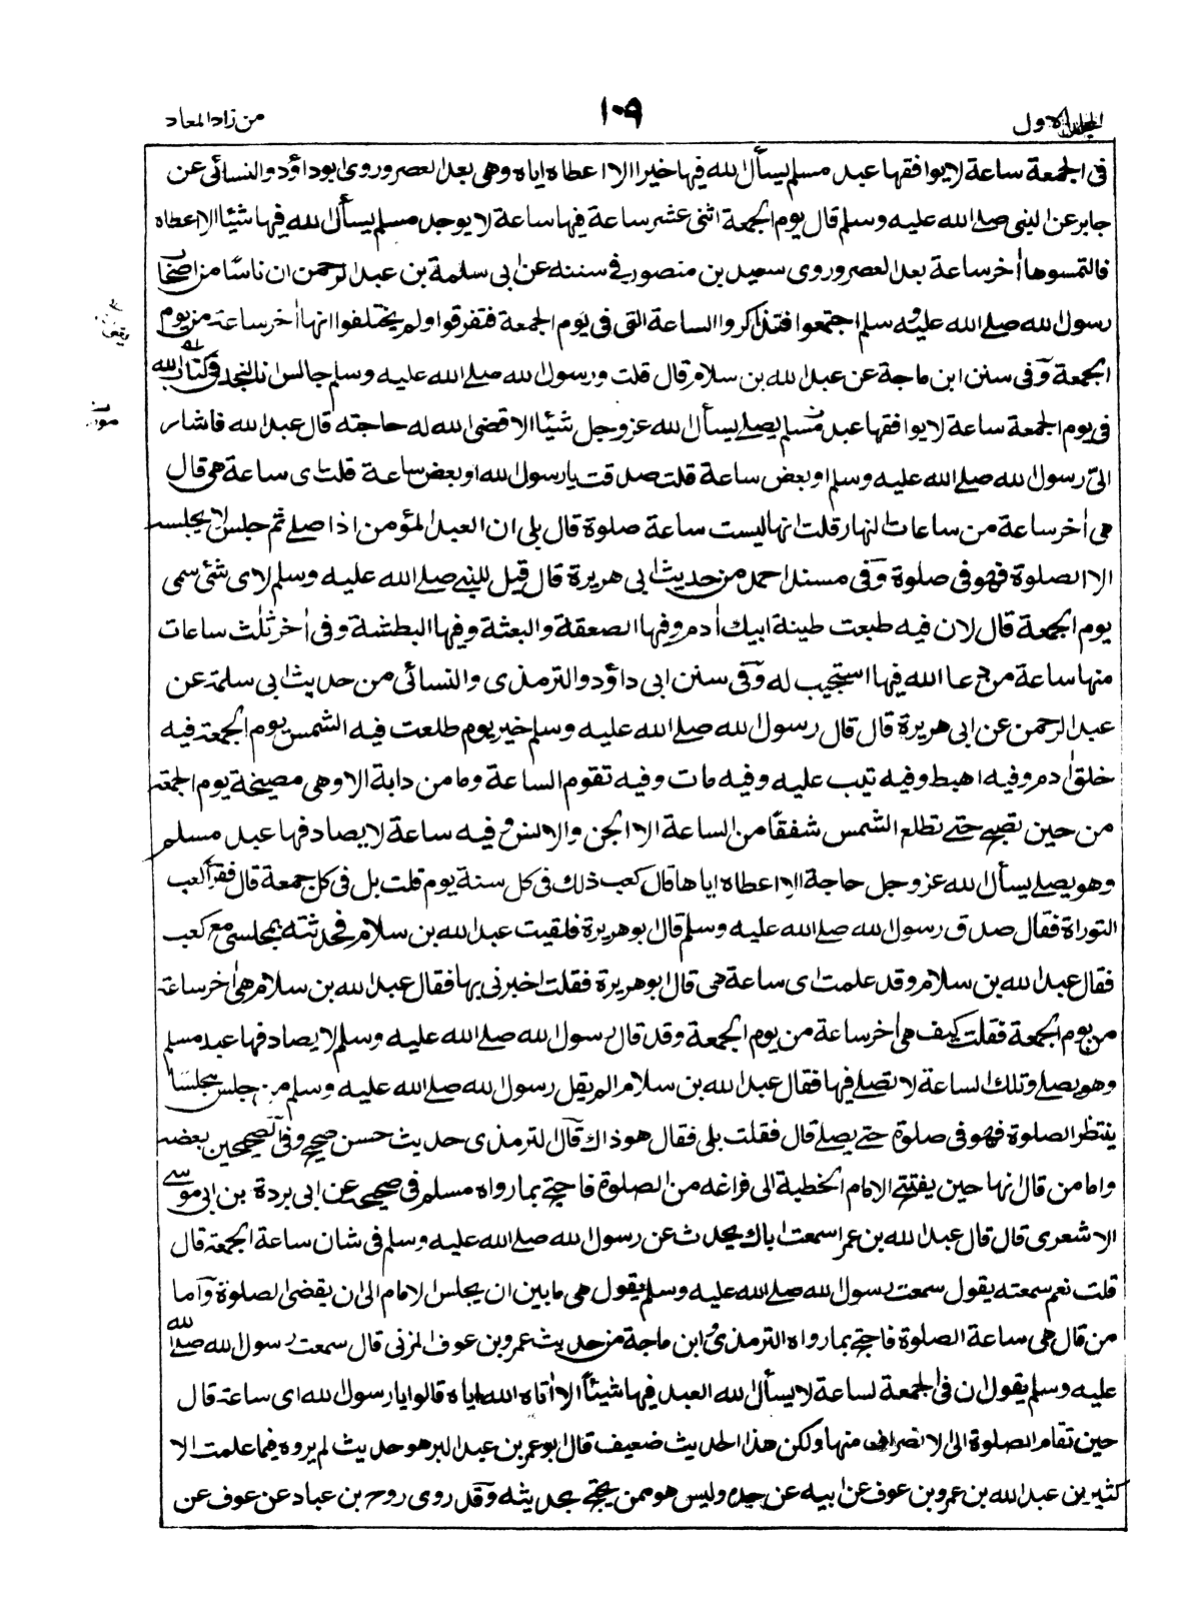 الجلد الاول
١٠٩
من زاد المعاد
فى الجمعة ساعة لا يوافقها عبد مسلم يسأل الله فيها خيرا الا اعطاه اياه وهى بعد العصر وروى ابو داؤد والنسائى عن
جابر عن النبى صلے الله عليه وسلم قال يوم الجمعة اثنى عشر ساعة فيها ساعة لا يوجد مسلم يسأل الله فيها شيئا الا اعطاه
فالتمسوها اٰخر ساعة بعد العصر وروى سعيد بن منصور فے سننه عن ابى سلمة بن عبد الرحمن ان ناسًا من اصحاب
رسول الله صلے الله عليه وسلم اجتمعوا فتذاكروا الساعة التى فى يوم الجمعة فتفرقوا ولم يختلفوا انها اٰخر ساعة من يوم
الجمعة وفى سنن ابن ماجة عن عبد الله بن سلام قال قلت ورسول الله صلے الله عليه وسلم جالس انا لنجد فى كتاب الله
فى يوم الجمعة ساعة لا يوافقها عبد مسلم يصلے يسأل الله عز وجل شيئا الا قضى الله له حاجته قال عبد الله فاشار
الىّ رسول الله صلے الله عليه وسلم او بعض ساعة قلت صدقت يا رسول الله او بعض ساعة قلت اى ساعة هى قال
هى اٰخر ساعة من ساعات النهار قلت انها ليست ساعة صلوة قال بلى ان العبد المؤمن اذا صلے ثم جلس لا يجلسه
الا الصلوة فهو فى صلوة وفى مسند احمد من حديث ابى هريرة قال قيل للنبے صلے الله عليه وسلم لاى شئ سمى
يوم الجمعة قال لان فيه طبعت طينة ابيك اٰدم وفيها الصعقة والبعثة وفيها البطشة وفى اٰخر ثلٰث ساعات
منها ساعة من دعا الله فيها استجيب له وفى سنن ابى داؤد والترمذى والنسائى من حديث ابى سلمة عن
عبد الرحمن عن ابى هريرة قال قال رسول الله صلے الله عليه وسلم خير يوم طلعت فيه الشمس يوم الجمعة فيه
خلق اٰدم وفيه اهبط وفيه تيب عليه وفيه مات وفيه تقوم الساعة وما من دابة الا وهى مصيخة يوم الجمعة
من حين تصبح حتے تطلع الشمس شفقًا من الساعة الا الجن والانس وفيه ساعة لا يصادفها عبد مسلم
وهو يصلے يسأل الله عز وجل حاجة الا اعطاه اياها قال كعب ذلك فى كل سنة يوم قلت بل فى كل جمعة قال فقرأ كعب
التوراة فقال صدق رسول الله صلے الله عليه وسلم قال ابو هريرة فلقيت عبد الله بن سلام فحدثته بمجلسى مع كعب
فقال عبد الله بن سلام وقد علمت اى ساعة هى قال ابو هريرة فقلت اخبرنى بها فقال عبد الله بن سلام هى اٰخر ساعة
من يوم الجمعة فقلت كيف هى اٰخر ساعة من يوم الجمعة وقد قال رسول الله صلے الله عليه وسلم لا يصادفها عبد مسلم
وهو يصلے وتلك الساعة لا تصلے فيها فقال عبد الله بن سلام الم يقل رسول الله صلے الله عليه وسلم من جلس مجلسًا
ينتظر الصلوة فهو فى صلوة حتے يصلے قال فقلت بلى فقال هو ذاك قال الترمذى حديث حسن صحيح وفى الصحيحين بعضه
واما من قال انها حين يفتتح الامام الخطبة الى فراغه من الصلوة فاحتج بما رواه مسلم فى صحيحه عن ابى بردة بن ابى موسے
الاشعرى قال قال عبد الله بن عمر اسمعت اباك يحدث عن رسول الله صلے الله عليه وسلم فى شان ساعة الجمعة قال
قلت نعم سمعته يقول سمعت رسول الله صلے الله عليه وسلم يقول هى ما بين ان يجلس الامام الى ان يقضى الصلوة واما
من قال هى ساعة الصلوة فاحتج بما رواه الترمذى وابن ماجة من حديث عمرو بن عوف المزنى قال سمعت رسول الله صلے الله
عليه وسلم يقول ان فى الجمعة لساعة لا يسأل الله العبد فيها شيئًا الا اٰتاه الله اياه قالوا يا رسول الله اى ساعة قال
حين تقام الصلوة الى الانصراف منها ولكن هذا الحديث ضعيف قال ابو عمر بن عبد البر هو حديث لم يروه فيما علمت الا
كثير بن عبد الله بن عمرو بن عوف عن ابيه عن جده وليس هو ممن يحتج بحديثه وقد روى روح بن عباد عن عوف عن